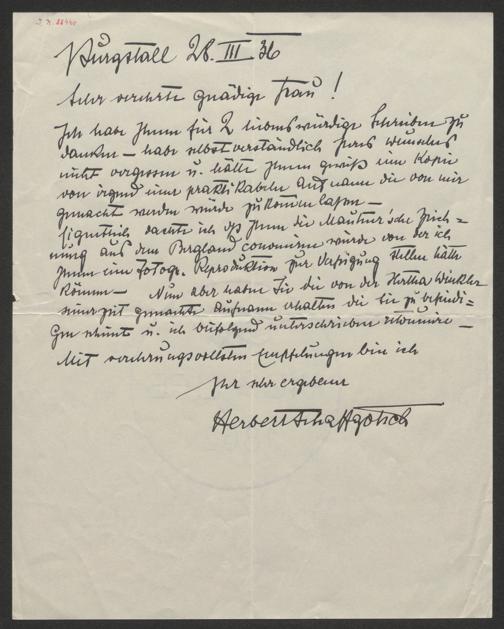 Purgstall 28. III 36
Sehr verehrte gnädige Frau!
Ich habe Ihnen für 2 liebenswürdige Schreiben zu
danken – habe selbstverständlich Ihres Wunsches
nicht vergessen u. hätte Ihnen gewiß eine Kopie
von irgend einer praktikablen Aufnahme die von mir
gemacht worden würde zukommen lassen –
Eigentlich dachte ich daß Ihnen die Mautner'sche Zeich=
nung aus dem Bergland convenieren würde von der ich
Ihnen eine Fotogr. Reproduktion zur Verfügung stellen hätte
können – Nun aber haben Sie die von der Hertha Winkler
seinerzeit gemachte Aufnahme erhalten die Sie zu befriedi=
gen scheint u. ich beifolgend unterschrieben retourniere –
Mit verehrungsvollsten Empfehlungen bin ich
Ihr sehr ergebener
Herbert Schaffgotsch